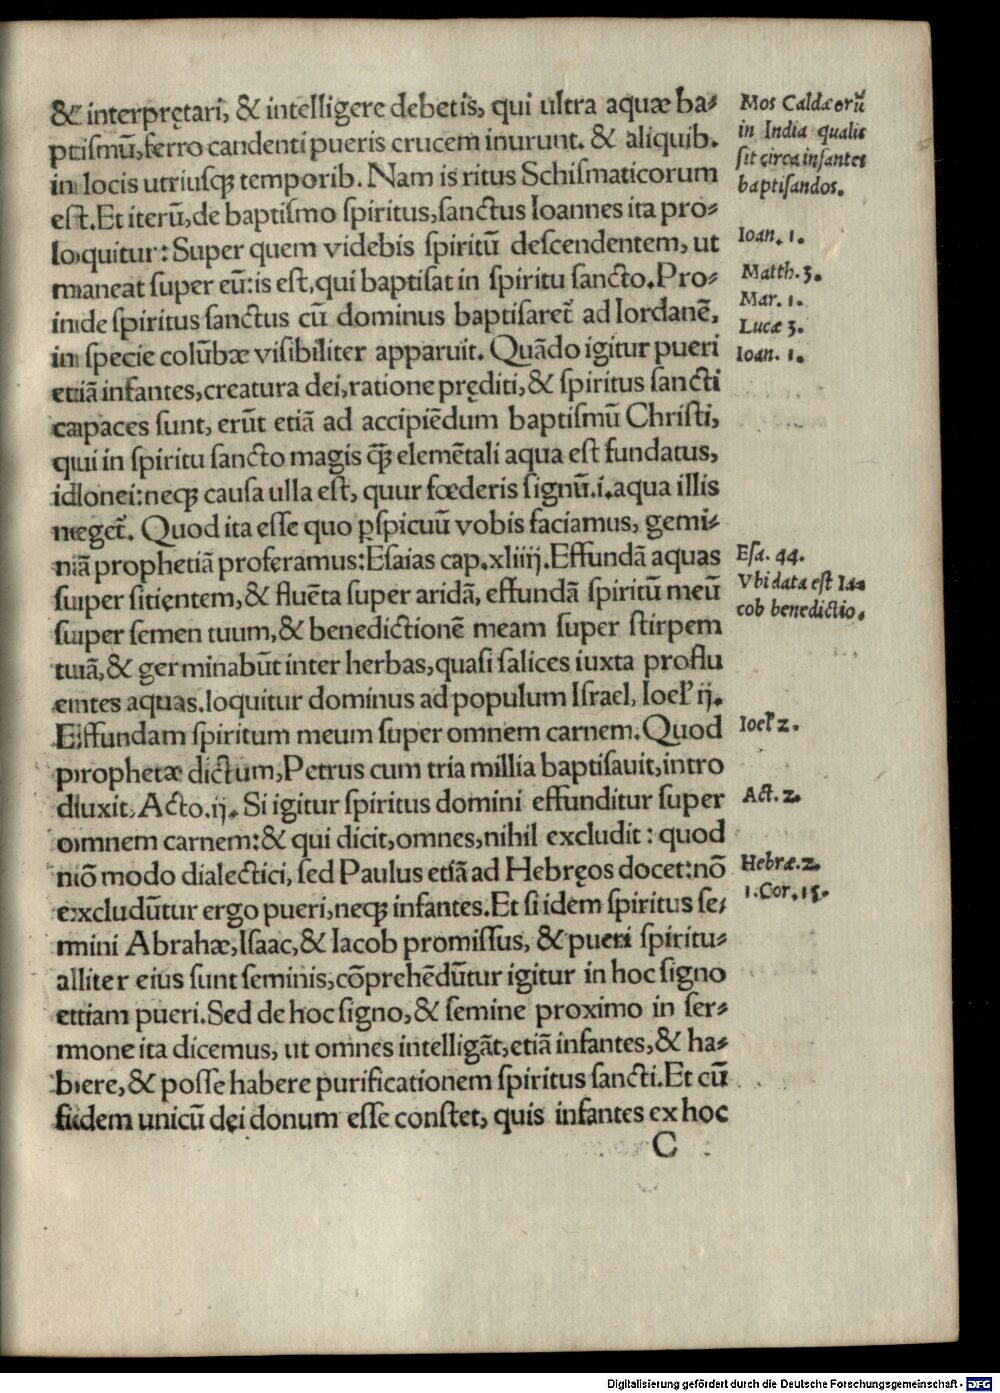 & interprętari, & intelligere debetis, qui ultra aquæ ba⸗
ptiſmū, ferro candenti pueris crucem inurunt. & aliquib.
in locis utriuſqꝫ temporib. Nam is ritus Schiſmaticorum
eſt. Et iterū, de baptiſmo ſpiritus, ſanctus Ioannes ita pro⸗
loquitur: Super quem videbis ſpiritū deſcendentem, ut
maneat ſuper eū: is eſt, qui baptiſat in ſpiritu ſancto. Pro⸗
inde ſpiritus ſanctus cū dominus baptiſaret̃ ad Iordanē,
in ſpecie colūbæ viſibiliter apparuit. Quādo igitur pueri
etiā infantes, creatura dei, ratione pręditi, & ſpiritus ſancti
capaces ſunt, erūt etiā ad accipiēdum baptiſmū Chriſti,
qui in ſpiritu ſancto magis q̄ꝫ elemētali aqua eſt fundatus,
idonei: neqꝫ cauſa ulla eſt, quur fœderis ſignū .i. aqua illis
neget̃. Quod ita eſſe quo ꝑſpicuū vobis faciamus, gemi⸗
nā prophetiā proferamus: Eſaias cap. xliiij. Effundā aquas
ſuper ſitientem, & fluēta ſuper aridā, effundā ſpiritū meū
ſuper ſemen tuum, & benedictionē meam ſuper ſtirpem
tuā, & germinabūt inter herbas, quaſi ſalices iuxta proflu
entes aquas. loquitur dominus ad populum Iſrael, Ioel' ij.
Effundam ſpiritum meum ſuper omnem carnem. Quod
prophetæ dictum, Petrus cum tria millia baptiſauit, intro
duxit, Acto. ij. Si igitur ſpiritus domini effunditur ſuper
omnem carnem: & qui dicit, omnes, nihil excludit: quod
nō modo dialectici, ſed Paulus etiā ad Hebręos docet: nō
excludūtur ergo pueri, neqꝫ infantes. Et ſi idem ſpiritus ſe⸗
mini Abrahæ, Iſaac, & Iacob promiſſus, & pueri ſpiritu⸗
aliter eius ſunt ſeminis, cōprehēdūtur igitur in hoc ſigno
etiam pueri. Sed de hoc ſigno, & ſemine proximo in ſer⸗
mone ita dicemus, ut omnes intelligāt, etiā infantes, & ha⸗
bere, & poſſe habere purificationem ſpiritus ſancti. Et cū
fidem unicū dei donum eſſe conſtet, quis infantes ex hoc
C
Mos Caldæorū
in India qualis
ſit circa infantes
baptiſandos.
Ioan. 1.
Matth. 3.
Mar. 1.
Lucæ 3.
Ioan. 1.
Eſa. 44.
Vbi data eſt Ia⸗
cob benedictio.
Ioel' 2.
Act. 2.
Hebræ. 2.
1. Cor. 15.
Digitalisierung gefördert durch die Deutsche Forschungsgemeinschaft - DFG